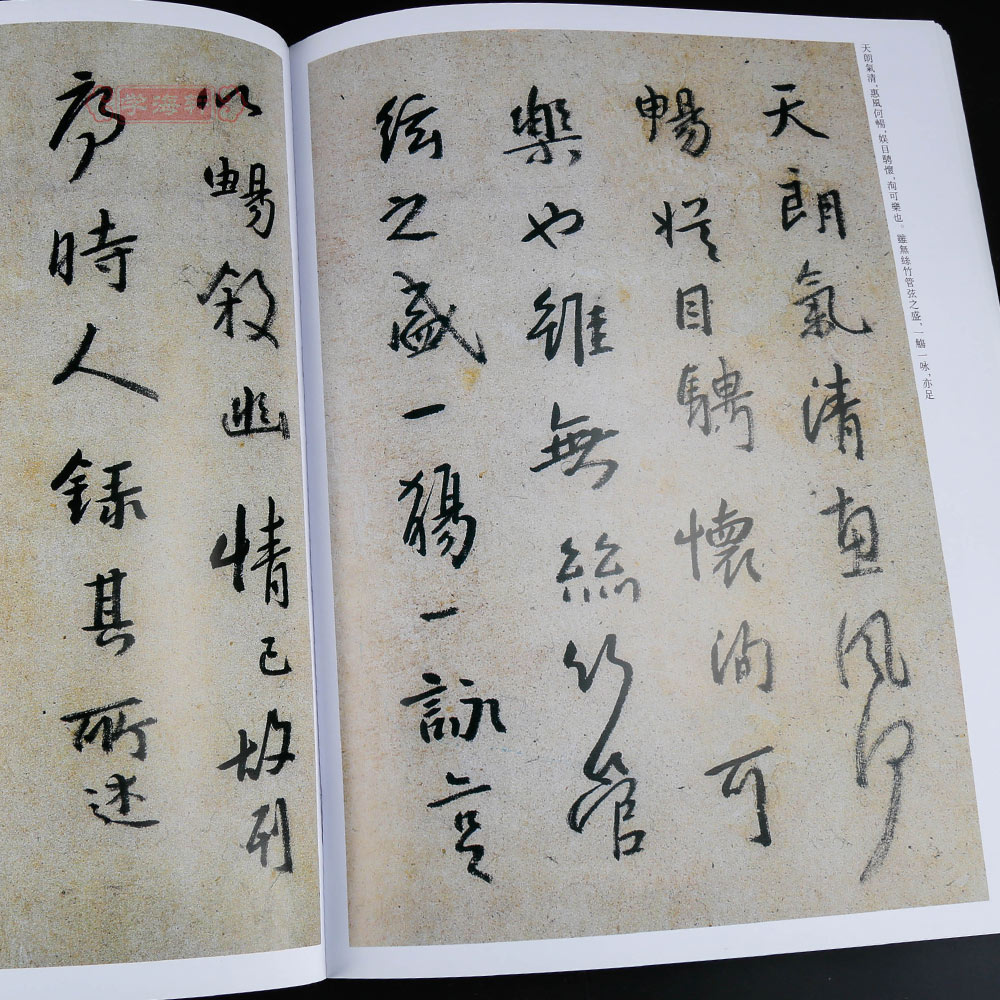 天朗氣清,惠風何暢,娛目騁懷,洵可樂也。雖無絲竹管弦之盛,一觴一咏,亦足
天朗氣清惠風何
暢娛目騁懷洵可
樂也雖無絲竹管
絃之盛一觴一詠亦足
以暢敘幽情已故列
序時人錄其所述
学海轩